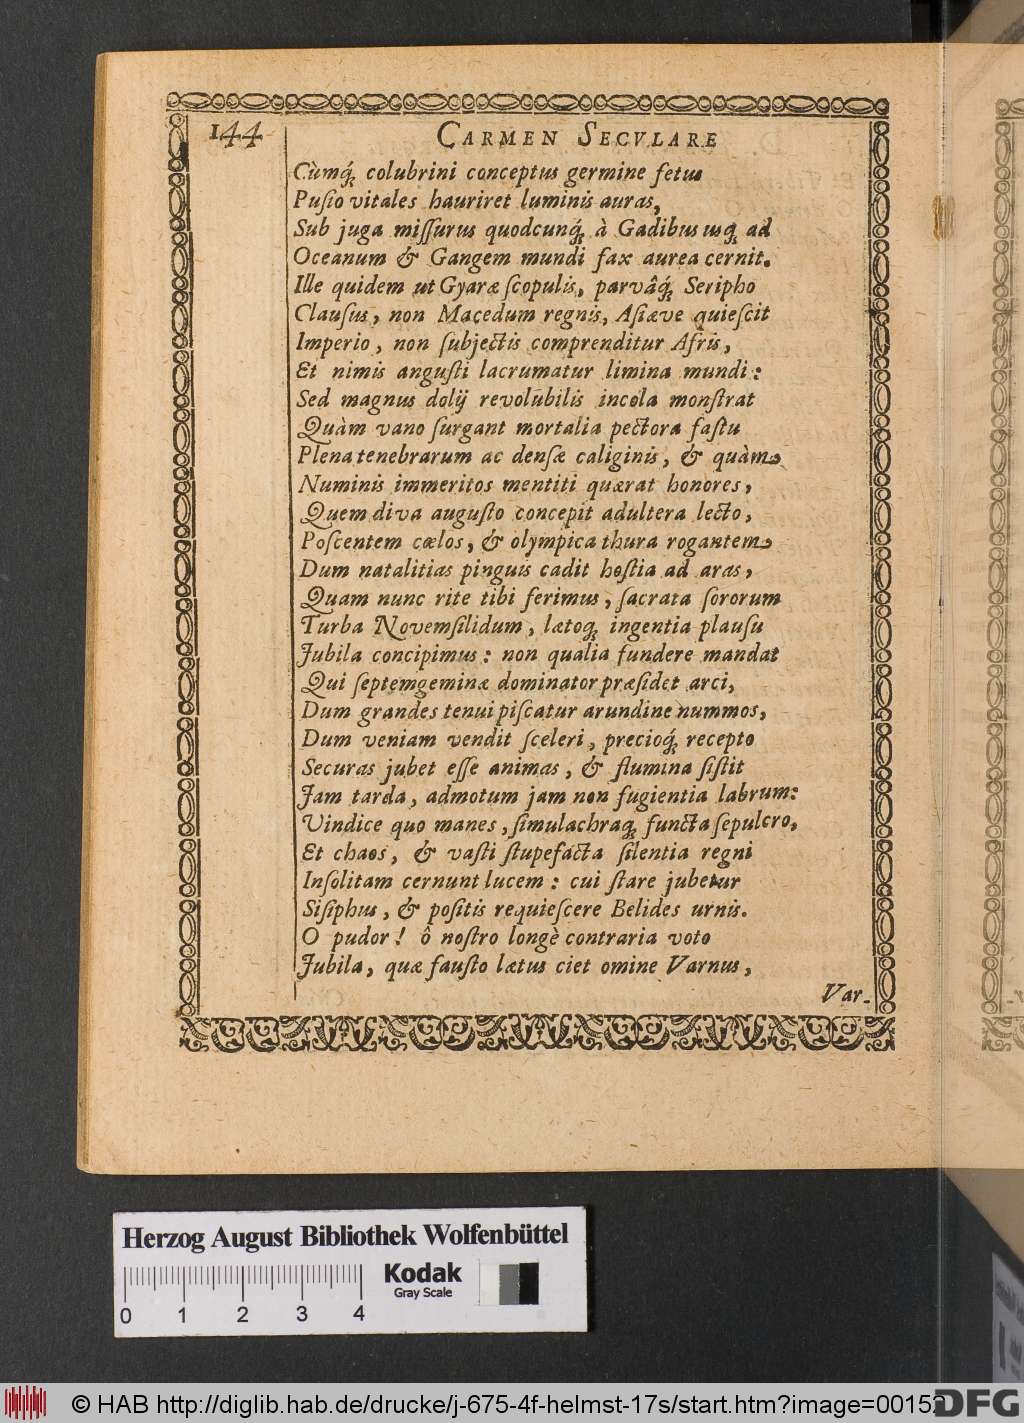 144 CARMEN SECVLARE
Cùmq́; colubrini conceptus germine fetus
Puſio vitales hauriret luminis auras,
Sub juga miſſurus quodcunq́; à Gadibus usq; ad
Oceanum & Gangem mundi fax aurea cernit.
Ille quidem ut Gyaræ ſcopulis, parvâq́; Seripho
Clauſus, non Macedum regnis, Aſiæve quieſcit
Imperio, non ſubjectis comprenditur Afris,
Et nimis anguſti lacrumatur limina mundi:
Sed magnus dolij revolubilis incola monſtrat
Quàm vano ſurgant mortalia pectora faſtu
Plena tenebrarum ac denſæ caliginis, & quàm
Numinis immeritos mentiti quærat honores,
Quem diva auguſto concepit adultera lecto,
Poſcentem cœlos, & olympica thura rogantem
Dum natalitias pinguis cadit hoſtia ad aras,
Quam nunc rite tibi ferimus, ſacrata ſororum
Turba Novemſilidum, lætoq; ingentia plauſu
Jubila concipimus: non qualia fundere mandat
Qui ſeptemgeminæ dominator præſidet arci,
Dum grandes tenui piſcatur arundine nummos,
Dum veniam vendit ſceleri, precioq́; recepto
Securas jubet eſſe animas, & flumina ſiſtit
Jam tarda, admotum jam non fugientia labrum:
Vindice quo manes, ſimulachraq; functa ſepulcro,
Et chaos, & vaſti ſtupefacta ſilentia regni
Inſolitam cernunt lucem: cui ſtare jubetur
Siſiphus, & poſitis requieſcere Belides urnis.
O pudor! ô noſtro longè contraria voto
Jubila, quæ fauſto lætus ciet omine Varnus,
Var-
Herzog August Bibliothek Wolfenbüttel
Kodak
Gray Scale
0 1 2 3 4
© HAB http://diglib.hab.de/drucke/j-675-4f-helmst-17s/start.htm?image=00152
DFG